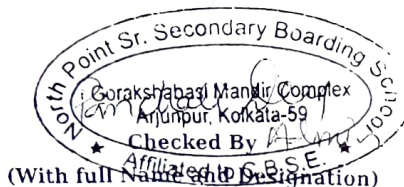 North Point Sr. Secondary Boarding School
Gorakshabasi Mandir Complex
Arjunpur, Kolkata-59
Checked By
Affiliated to C.B.S.E.
(With full Name and Designation)